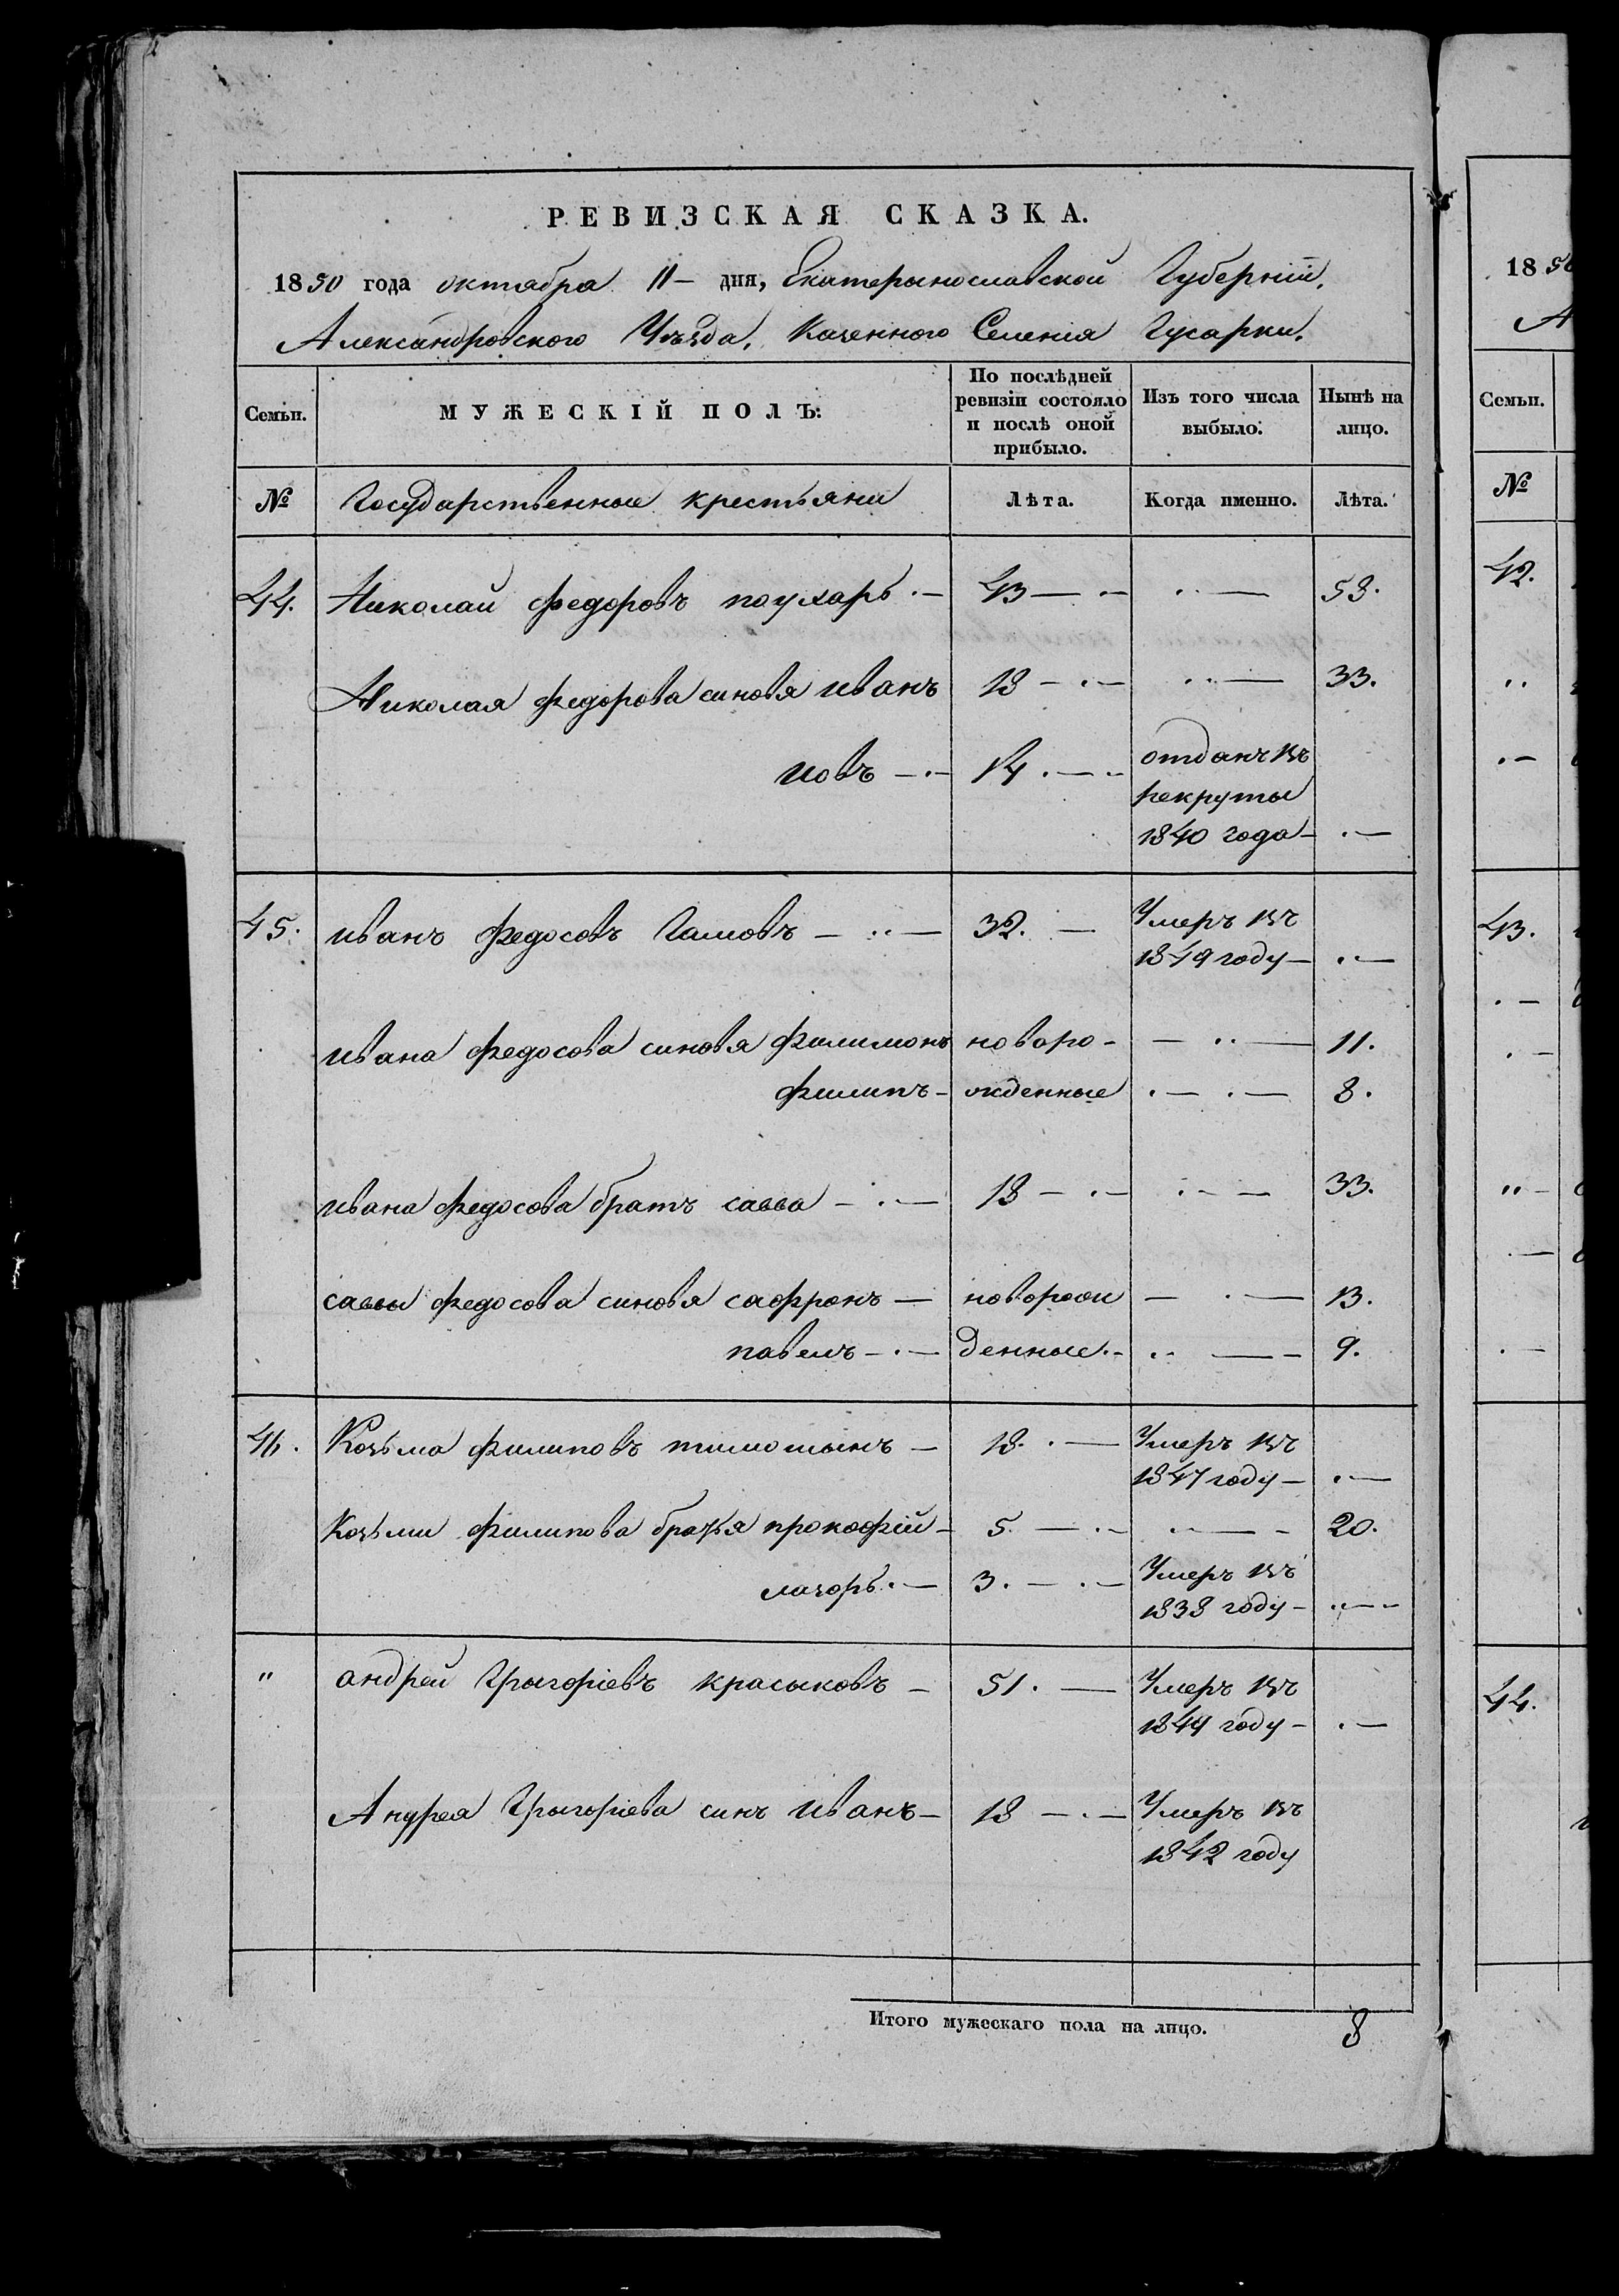 РЕВИЗСКАЯ СКАЗКА.
1850 года октября 11 – дня, Екатерынославской Губерніи,
Александровского Уѣзда, Казенного Селенія Гусарки.
Семьи. МУЖЕСКІЙ ПОЛЪ: По послѣдней ревизіи состояло и послѣ оной прибыло. Изъ того числа выбыло. Нынѣ на лицо.
№ Государственные крестьяни Лѣта. Когда именно. Лѣта.
44. Николай федоровъ поухарь 43 58.
Николая федорова синовя иванъ 18 33.
иовъ 14 отданъ въ
рекруты
1840 года
45. иванъ федосовъ Гамовъ 32. Умеръ въ
1849 году
ивана федосова синовя филимонъ новоро- 11.
филипъ жденные 8.
ивана федосова братъ савва 18 33.
саввы федосова синовя сафронъ новорож 13.
павелъ денные 9.
46. Козьма филиповъ тимошынъ 18. Умеръ въ
1847 году
Козьми филипова братья прокофій 5. 20.
лазорь 3. Умеръ въ
1838 году
" андрей Грыгоріевъ красыковъ 51. Умеръ въ
1844 году
Андрея Грыгоріева синъ иванъ 18 Умеръ въ
1842 году
Итого мужескаго пола на лицо. 8
1850
А
Семьи.
№
42.
43.
44.